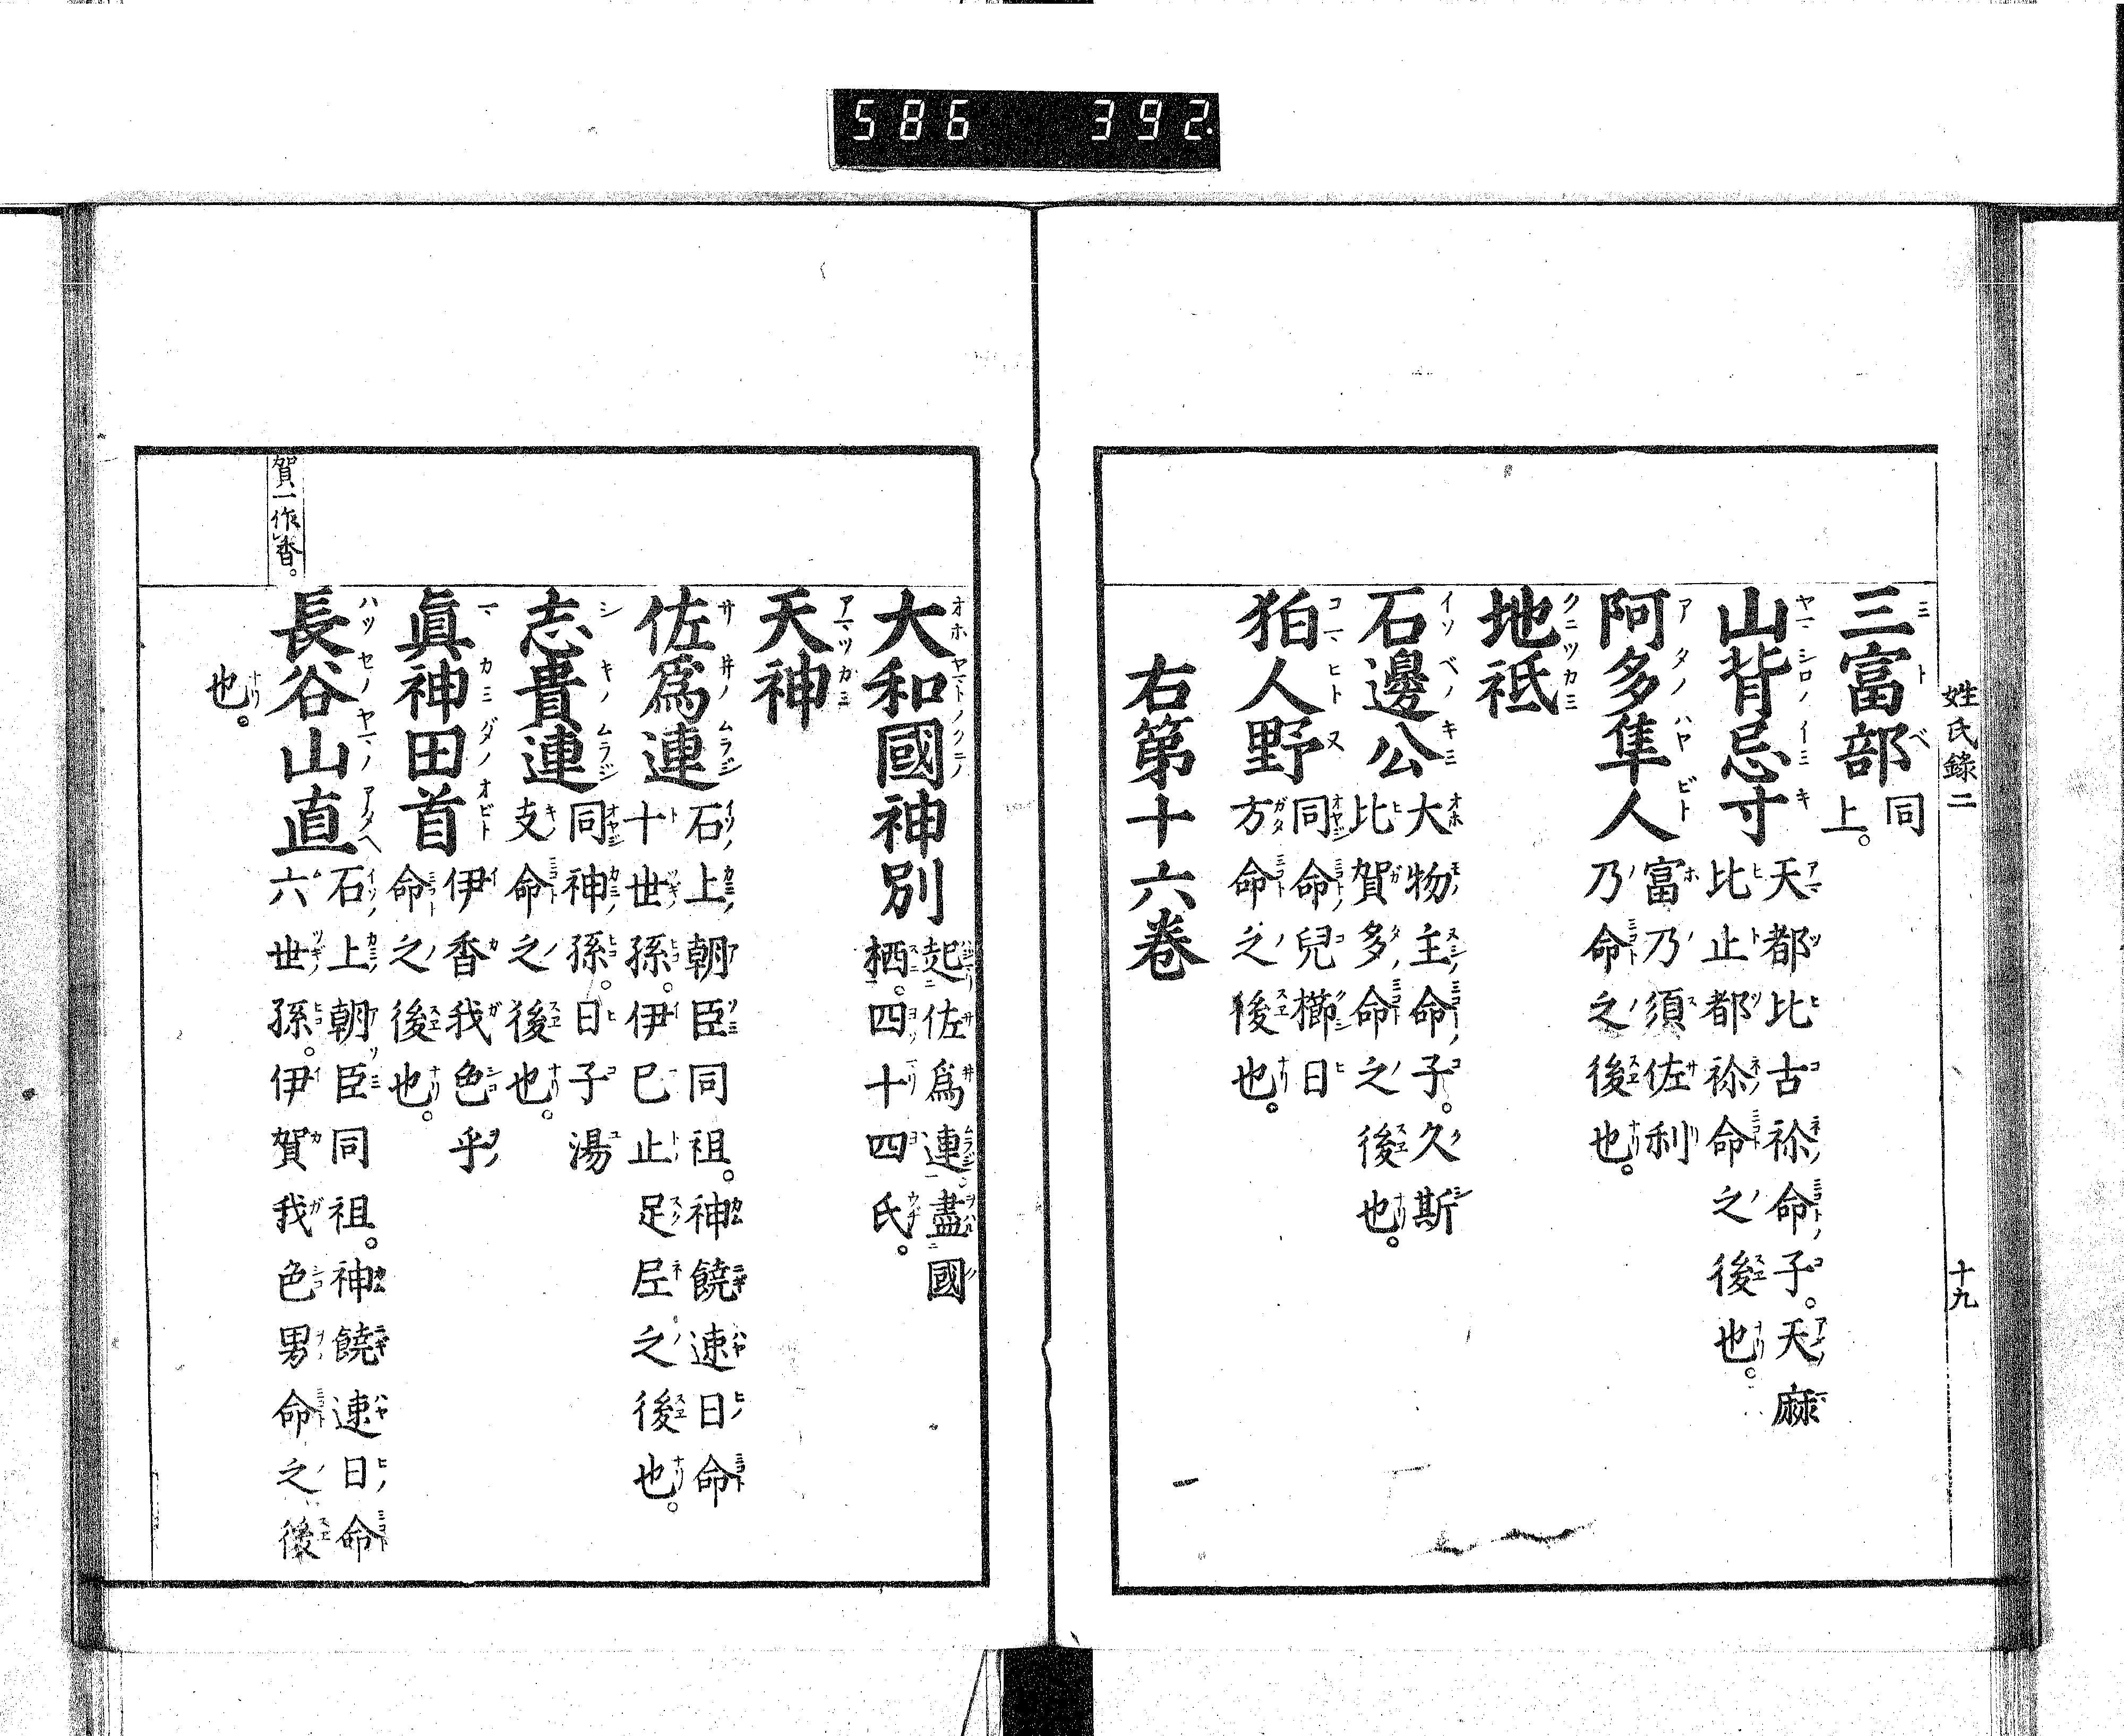 586 392.
姓氏錄二 十九
三富部 同上。
山背忌寸 天都比古祢命子。天麻
比止都祢命之後也。
阿多隼人 富乃須佐利
乃命之後也。
地祇
石邊公 大物主命子。久斯
比賀多命之後也。
狛人野 同命兒櫛日
方命之後也。
右第十六卷
大和國神別 起佐爲連。盡國
栖。四十四氏。
天神
佐爲連 石上朝臣同祖。神饒速日命
十世孫。伊己止足尼之後也。
志貴連 同神孫。日子湯
支命之後也。
眞神田首 伊香我色乎
命之後也。
長谷山直 石上朝臣同祖。神饒速日命
六世孫。伊賀我色男命之後
也。
賀一作香。